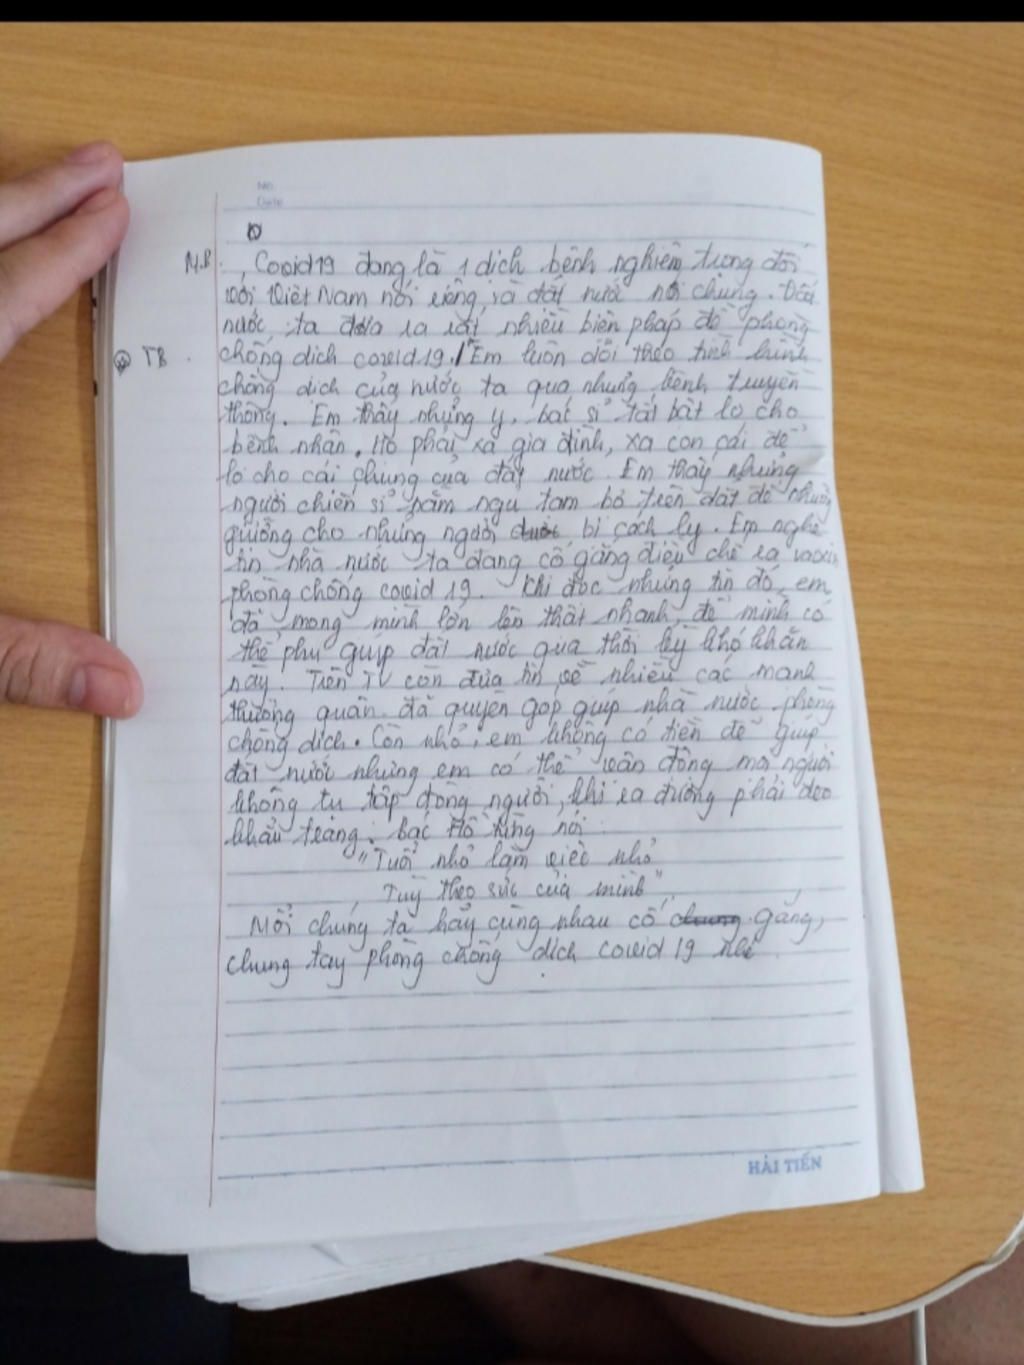 No.
Date
M.B. Covid19 đang là 1 dịch bệnh nghiêm trọng đối
với Việt Nam nói riêng và đất nước nói chung. Đất
nước ta đưa ra rất nhiều biện pháp để phòng
TB chống dịch covid19. Em luôn dõi theo tình hình
chống dịch của nước ta qua nhưng kênh truyền
thông. Em thấy nhưng y, bác sĩ tất bật lo cho
bệnh nhân. Họ phải xa gia đình, xa con cái để
lo cho cái chung của đất nước. Em thấy nhưng
người chiến sĩ nằm ngu tạm bợ trên đất để nhường
giường cho những người bị cách ly. Em nghe
tin nhà nước ta đang cố gắng điều chế ra vacxin
phòng chống covid 19. Khi đọc nhưng tin đó, em
đã mong mình lớn lên thật nhanh, để mình có
thể phụ giúp đất nước qua thời kỳ khó khăn
này. Trên TV còn đưa tin về nhiều các mạnh
thường quân đã quyên góp giúp nhà nước phòng
chống dịch. Còn nhỏ, em không có tiền để giúp
đất nước nhưng em có thể vận động mọi người
không tụ tập đông người, khi ra đường phải đeo
khẩu trang. Bác Hồ từng nói
"Tuổi nhỏ làm việc nhỏ
Tùy theo sức của mình".
Mỗi chúng ta hãy cùng nhau cố gắng,
chung tay phòng chống dịch covid 19 nhé
HẢI TIẾN